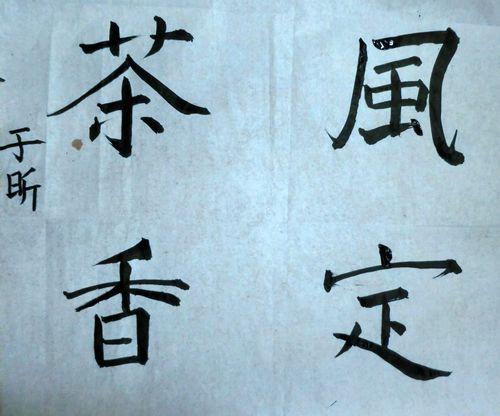 風定
茶香
于昕